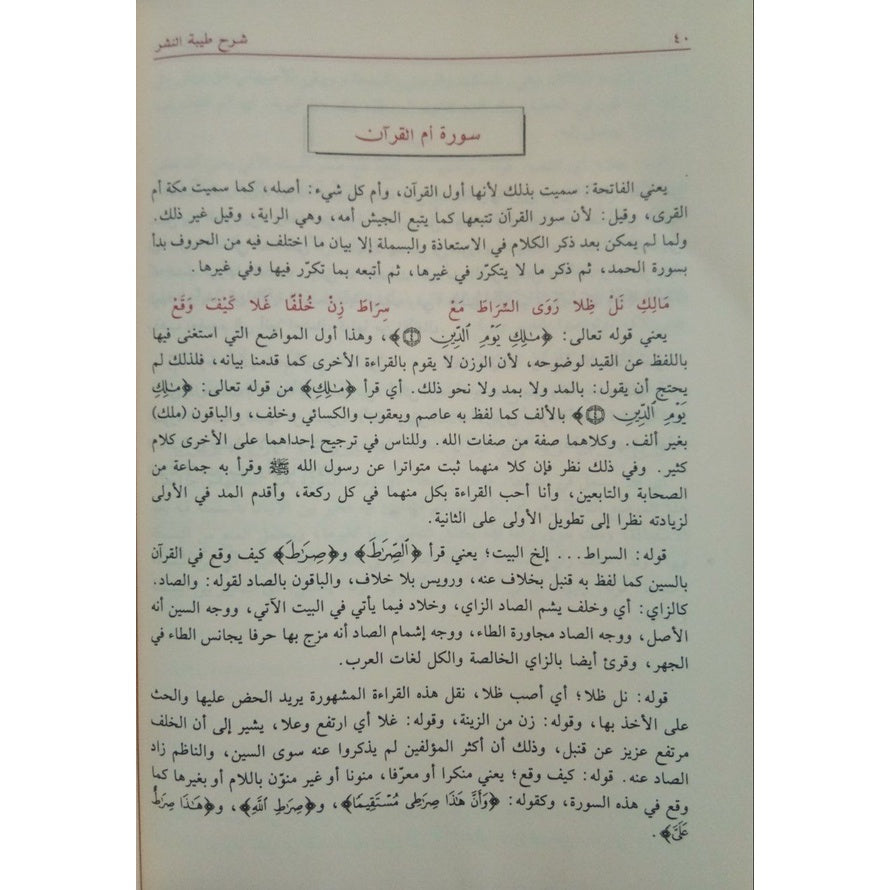 ٤٠ شرح طيبة النشر
سورة أم القرآن
يعني الفاتحة: سميت بذلك لأنها أول القرآن، وأم كل شيء: أصله، كما سميت مكة أم
القرى، وقيل: لأن سور القرآن تتبعها كما يتبع الجيش أمه، وهي الراية، وقيل غير ذلك.
ولما لم يمكن بعد ذكر الكلام في الاستعاذة والبسملة إلا بيان ما اختلف فيه من الحروف بدأ
بسورة الحمد، ثم ذكر ما لا يتكرّر في غيرها، ثم أتبعه بما تكرّر فيها وفي غيرها.
مَالِكِ نَلْ ظِلا رَوَى السِّرَاطَ مَعْ سِرَاطَ زِنْ خُلْفًا غَلا كَيْفَ وَقَعْ
يعني قوله تعالى: ﴿مَٰلِكِ يَوْمِ ٱلدِّينِ ۝٤﴾، وهذا أول المواضع التي استغنى فيها
باللفظ عن القيد لوضوحه، لأن الوزن لا يقوم بالقراءة الأخرى كما قدمنا بيانه، فلذلك لم
يحتج أن يقول: بالمد ولا بمد ولا نحو ذلك. أي قرأ ﴿مَٰلِكِ﴾ من قوله تعالى: ﴿مَٰلِكِ
يَوْمِ ٱلدِّينِ ۝٤﴾ بالألف كما لفظ به عاصم ويعقوب والكسائي وخلف، والباقون (ملك)
بغير ألف. وكلاهما صفة من صفات الله. وللناس في ترجيح إحداهما على الأخرى كلام
كثير. وفي ذلك نظر فإن كلا منهما ثبت متواترا عن رسول الله ﷺ وقرأ به جماعة من
الصحابة والتابعين، وأنا أحب القراءة بكل منهما في كل ركعة، وأقدم المد في الأولى
لزيادته نظرا إلى تطويل الأولى على الثانية.
قوله: السراط... إلخ البيت؛ يعني قرأ ﴿ٱلصِّرَٰطَ﴾ و﴿صِرَٰطَ﴾ كيف وقع في القرآن
بالسين كما لفظ به قنبل بخلاف عنه، ورويس بلا خلاف، والباقون بالصاد لقوله: والصاد.
كالزاي: أي وخلف يشم الصاد الزاي، وخلاد فيما يأتي في البيت الآتي، ووجه السين أنه
الأصل، ووجه الصاد مجاورة الطاء، ووجه إشمام الصاد أنه مزج بها حرفا يجانس الطاء في
الجهر، وقرئ أيضا بالزاي الخالصة والكل لغات العرب.
قوله: نل ظلا؛ أي أصب ظلا، نقل هذه القراءة المشهورة يريد الحض عليها والحث
على الأخذ بها، وقوله: زن من الزينة، وقوله: غلا أي ارتفع وعلا، يشير إلى أن الخلف
مرتفع عزيز عن قنبل، وذلك أن أكثر المؤلفين لم يذكروا عنه سوى السين، والناظم زاد
الصاد عنه. قوله: كيف وقع؛ يعني منكرا أو معرّفا، منونا أو غير منوّن باللام أو بغيرها كما
وقع في هذه السورة، وكقوله: ﴿وَأَنَّ هَٰذَا صِرَٰطِى مُسْتَقِيمًا﴾، و﴿صِرَٰطِ ٱللَّهِ﴾، و﴿هَٰذَا صِرَٰطٌ
عَلَىَّ﴾.